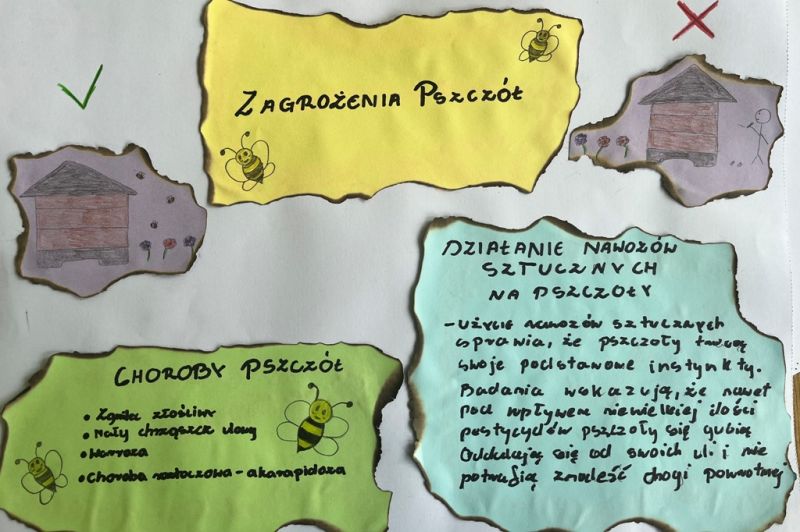 ZAGROŻENIA PSZCZÓŁ
DZIAŁANIE NAWOZÓW
SZTUCZNYCH
NA PSZCZOŁY
- UŻYCIE NAWOZÓW SZTUCZNYCH
sprawia, że pszczoły tracą
swoje podstawowe instynkty.
Badania wskazują, że nawet
pod wpływem niewielkiej ilości
pestycydów pszczoły się gubią
Oddalają się od swoich uli i nie
potrafią znaleść drogi powrotnej
CHOROBY PSZCZÓŁ
• Zgnilec złośliwy
• Mały chrząszcz ulowy
• Warroza
• Choroba roztoczowa - akarapidoza